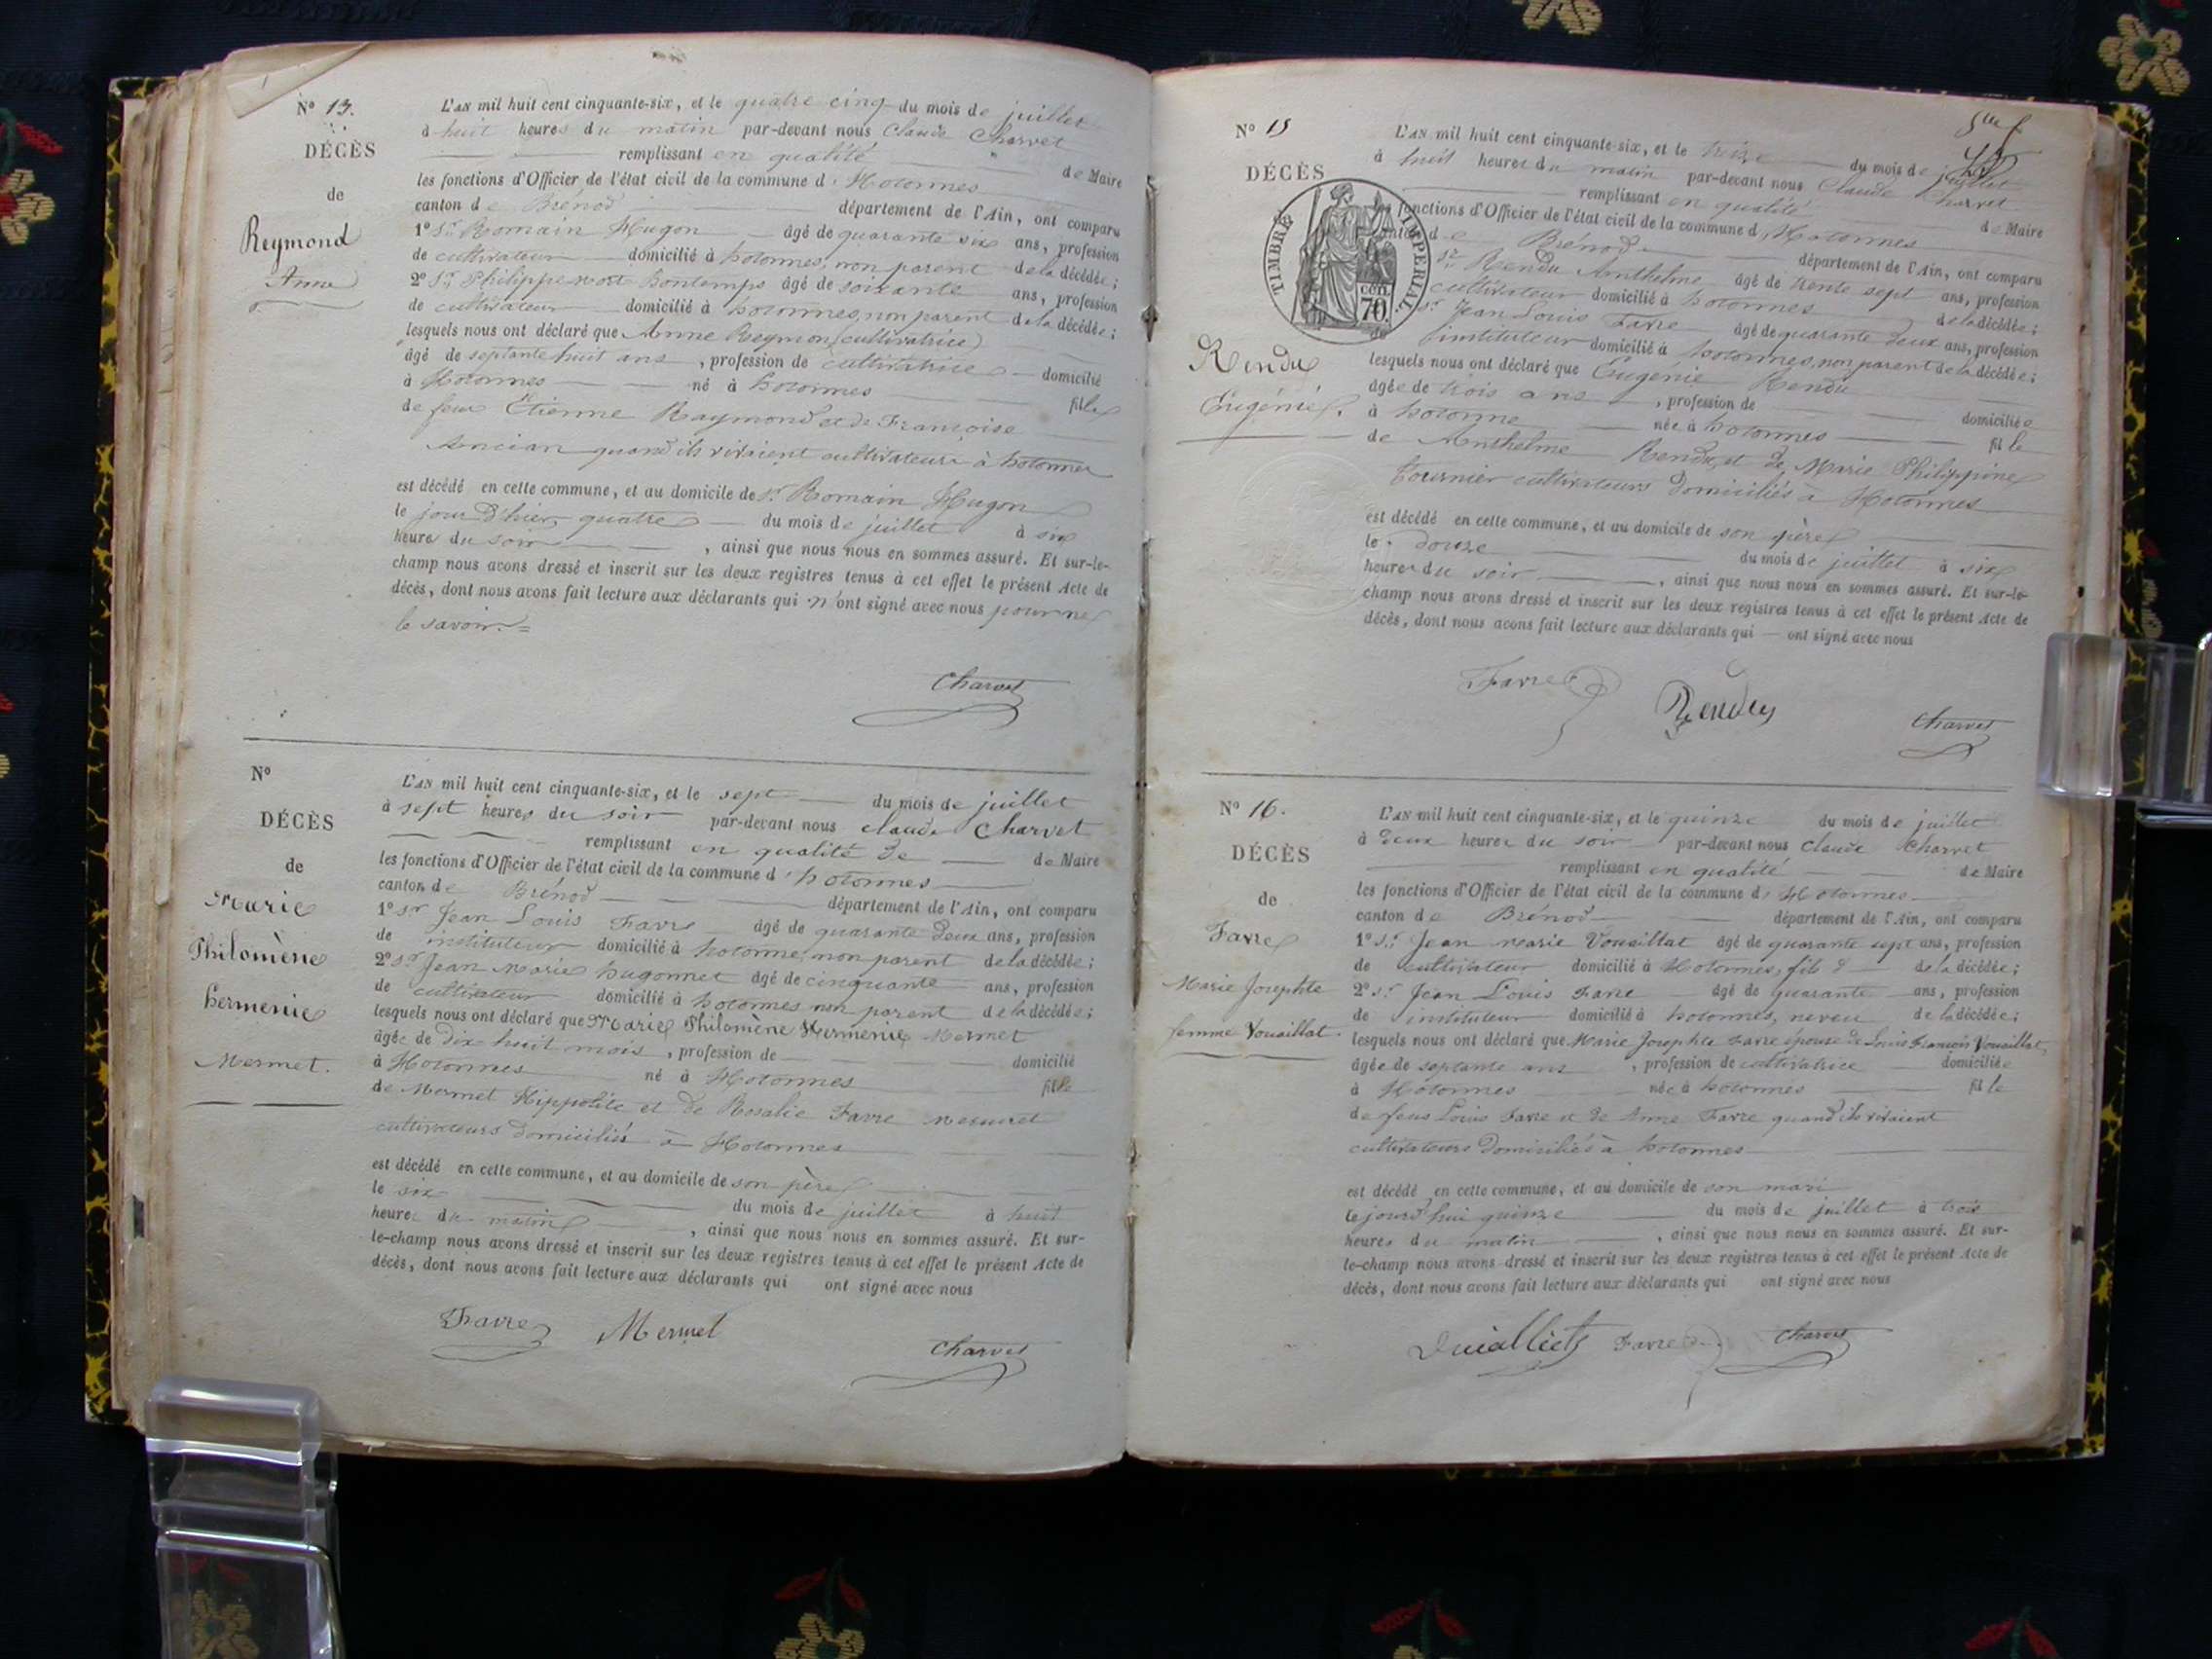 N° 13.
DÉCÈS
de
Reymond
Anne
L'AN mil huit cent cinquante-six, et le quatre cinq du mois de juillet
à huit heures du matin par-devant nous Claude Charvet
remplissant en qualité de Maire
les fonctions d'Officier de l'état civil de la commune d'Hotonnes
canton de Brénod département de l'Ain, ont comparu
1° Sr Romain Hugon âgé de quarante six ans, profession
de cultivateur domicilié à hotonnes, non parent de la décédée;
2° Sr Philippe hontemps âgé de soixante ans, profession
de cultivateur domicilié à hotonnes, non parent de la décédée;
lesquels nous ont déclaré que Anne Reymon (cultivatrice)
âgé de septante huit ans, profession de cultivatrice domicilié
à Hotonnes né à hotonnes fille
de feux Etienne Raymond et de Françoise
Ancian quand ils vivaient cultivateurs à hotonnes
est décédé en cette commune, et au domicile de Sr Romain Hugon
le jour d'hier quatre du mois de juillet à six
heures du soir, ainsi que nous nous en sommes assuré. Et sur-le-
champ nous avons dressé et inscrit sur les deux registres tenus à cet effet le présent Acte de
décès, dont nous avons fait lecture aux déclarants qui n'ont signé avec nous pour ne
le savoir.=
Charvet
N°
DÉCÈS
de
Marie
Philomène
hermenie
Mermet.
L'AN mil huit cent cinquante-six, et le sept du mois de juillet
à sept heures du soir par-devant nous claude Charvet
remplissant en qualité de de Maire
les fonctions d'Officier de l'état civil de la commune d'hotonnes
canton de Brénod département de l'Ain, ont comparu
1° Sr Jean Louis Favre âgé de quarante deux ans, profession
de instituteur domicilié à hotonne, non parent de la décédée;
2° Sr Jean Marie hugonnet âgé de cinquante ans, profession
de cultivateur domicilié à hotonnes non parent de la décédée;
lesquels nous ont déclaré que Marie Philomène Hermenie Mermet
âgée de dix huit mois, profession de domicilié
à Hotonnes né à Hotonnes fille
de Mermet Hippolite et de Rosalie Favre
cultivateurs domiciliés à Hotonnes
est décédé en cette commune, et au domicile de son père
le six du mois de juillet à huit
heures du matin, ainsi que nous nous en sommes assuré. Et sur-
le-champ nous avons dressé et inscrit sur les deux registres tenus à cet effet le présent Acte de
décès, dont nous avons fait lecture aux déclarants qui ont signé avec nous
Favre Mermet Charvet
N° 15
DÉCÈS
TIMBRE IMPERIAL
70 cen.
de
Rendu
Eugénie.
L'AN mil huit cent cinquante-six, et le treize du mois de juillet
à huit heures du matin par-devant nous Claude Charvet
remplissant en qualité de Maire
fonctions d'Officier de l'état civil de la commune d'Hotonnes
de Brénod département de l'Ain, ont comparu
Sr Rendu Anthelme âgé de trente sept ans, profession
cultivateur domicilié à hotonnes de la décédée;
Sr Jean Louis Favre âgé de quarante deux ans, profession
instituteur domicilié à hotonnes, non parent de la décédée;
lesquels nous ont déclaré que Eugénie Rendu
âgée de trois ans, profession de domiciliée
à hotonne née à hotonnes fille
de Anthelme Rendu et de Marie Philippine
tournier cultivateurs domiciliés à Hotonnes
est décédé en cette commune, et au domicile de son père
le douze du mois de juillet à six
heures du soir, ainsi que nous nous en sommes assuré. Et sur-le-
champ nous avons dressé et inscrit sur les deux registres tenus à cet effet le présent Acte de
décès, dont nous avons fait lecture aux déclarants qui ont signé avec nous
Favre Rendu Charvet
N° 16.
DÉCÈS
de
Favre
Marie Josephte
femme Vouaillat.
L'AN mil huit cent cinquante-six, et le quinze du mois de juillet
à deux heures du soir par-devant nous Claude Charvet
remplissant en qualité de Maire
les fonctions d'Officier de l'état civil de la commune d'Hotonnes
canton de Brénod département de l'Ain, ont comparu
1° Sr Jean Marie Vouaillat âgé de quarante sept ans, profession
de cultivateur domicilié à Hotonnes, fils de la décédée;
2° Sr Jean Louis Favre âgé de quarante ans, profession
de instituteur domicilié à hotonnes, neveu de la décédée;
lesquels nous ont déclaré que Marie Josephte Favre épouse de Louis François Vouaillat
âgée de septante ans, profession de cultivatrice domiciliée
à Hotonnes née à hotonnes fille
de feus Louis Favre et de Anne Favre quand ils vivaient
cultivateurs domiciliés à hotonnes
est décédé en cette commune, et au domicile de son mari
le jourd'hui quinze du mois de juillet à trois
heures du matin, ainsi que nous nous en sommes assuré. Et sur-
le-champ nous avons dressé et inscrit sur les deux registres tenus à cet effet le présent Acte de
décès, dont nous avons fait lecture aux déclarants qui ont signé avec nous
Favre Charvet